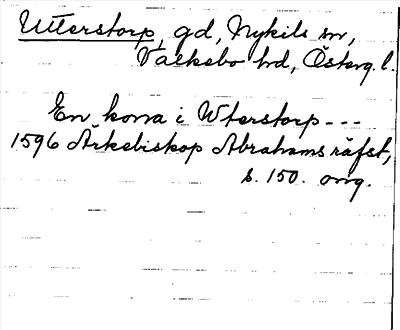 Utterstorp, gd, Nykils sn,
Valkebo hd, Österg. l.
En kona i Wterstorp ---
1596 Ärkebiskop Abrahams räfst,
s. 150. orig.